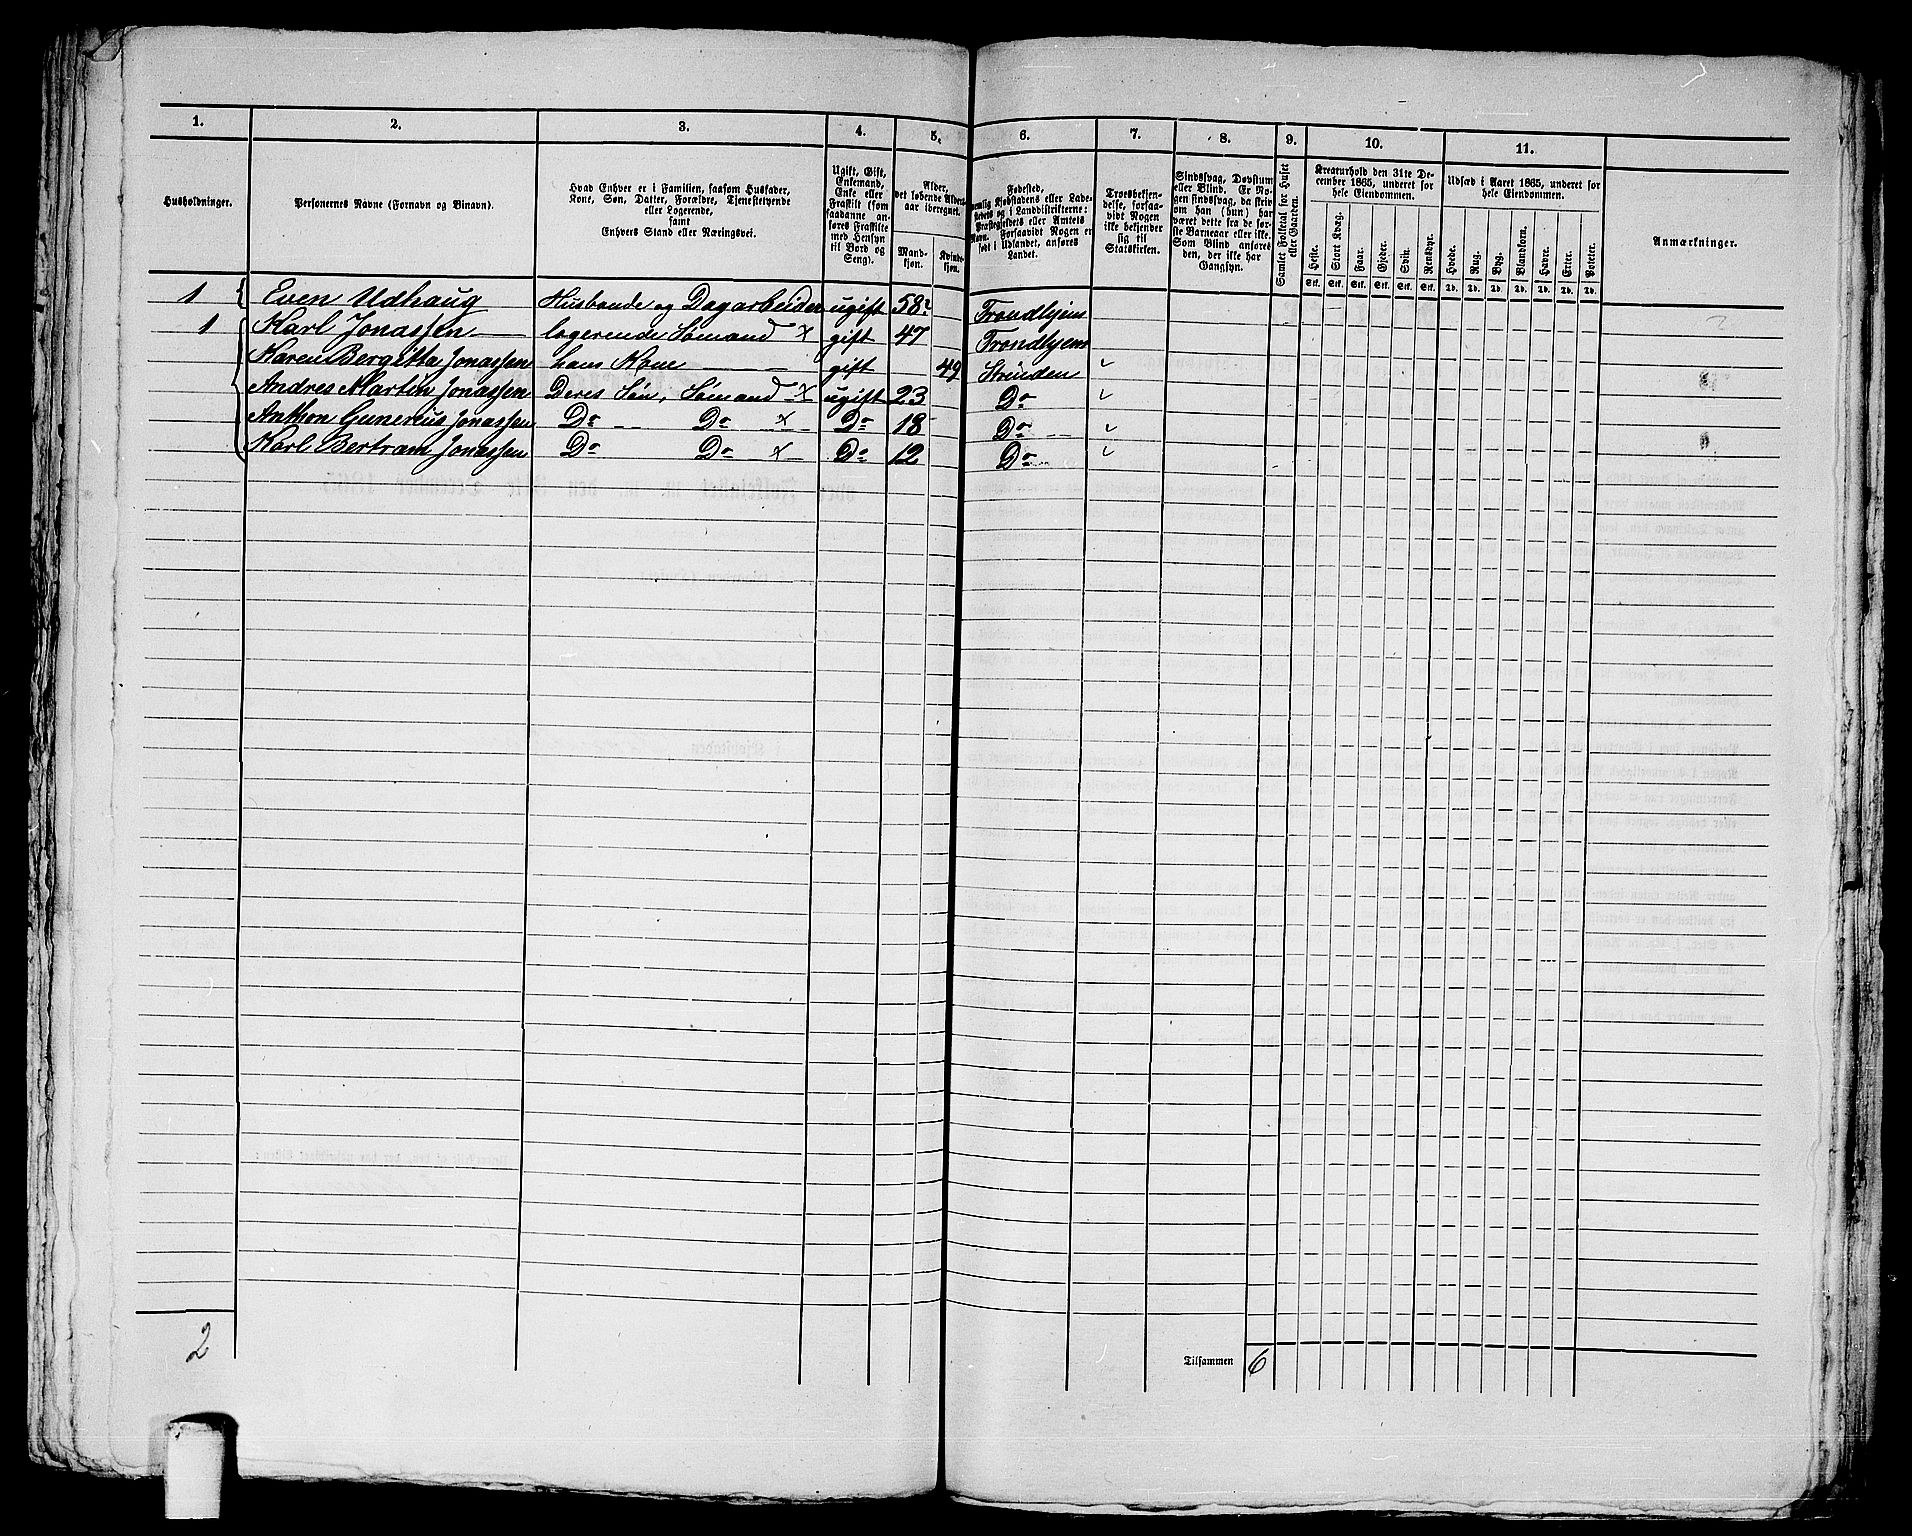 1. 2. 3. 4. 5. 6. 7. 8. 9. 10. 11.
Husholdninger.
Personernes Navne (Fornavn og Binavn).
Hvad Enhver er i Familien, saasom Husfader,
Kone, Søn, Datter, Forældre, Tjenestetyende
eller Logerende,
samt
Enhvers Stand eller Næringsvei.
Ugift, Gift,
Enkemand,
Enke eller
Fraskilt (som
saadanne an-
føres Fraskilte
med Hensyn
til Bord og
Seng).
Alder,
det løbende Alders-
aar iberegnet.
Mand-
kjøn.
Kvinde-
kjøn.
Fødested,
nemlig Kjøbstadens eller Lade-
stedets og i Landdistrikterne:
Præstegjældets eller Amtets
Navn. Forsaavidt Nogen er
født i Udlandet, anføres
Landet.
Troesbekjen-
delse, forsaa-
vidt Nogen
ikke bekjender
sig til
Statskirken.
Sindssvag, Døvstum
eller Blind. Er No-
gen sindssvag, da skriv
om han (hun) har
været dette fra de før-
ste Barneaar eller ikke.
Som Blind anføres
den, der ikke har
Gangsyn.
Samlet Folketal for Huset
eller Gaarden.
Kreaturhold den 31te De-
cember 1865, underet for
hele Eiendommen.
Heste. Stort Kvæg. Faar. Gjeder. Svin. Rensdyr.
Stk. Stk. Stk. Stk. Stk. Stk.
Udsæd i Aaret 1865, underet for
hele Eiendommen.
Hvede. Rug. Byg. Blandkorn. Havre. Erter. Poteter.
Td. Td. Td. Td. Td. Td. Td.
Anmærkninger.
1 Even Udhaug Husbonde og Dagarbeider ugift 58 Trondhjem
1 Karl Jonassen logerende Sømand x gift 47 Trondhjem
Karen Bergitta Jonassen hans Kone gift 49 Strinden
Andres Martin Jonassen Deres Søn, Sømand x ugift 23 Do
Anthon Gunerius Jonassen Do Do x Do 18 Do
Karl Bertram Jonassen Do Do x Do 12 Do
2
Tilsammen 6